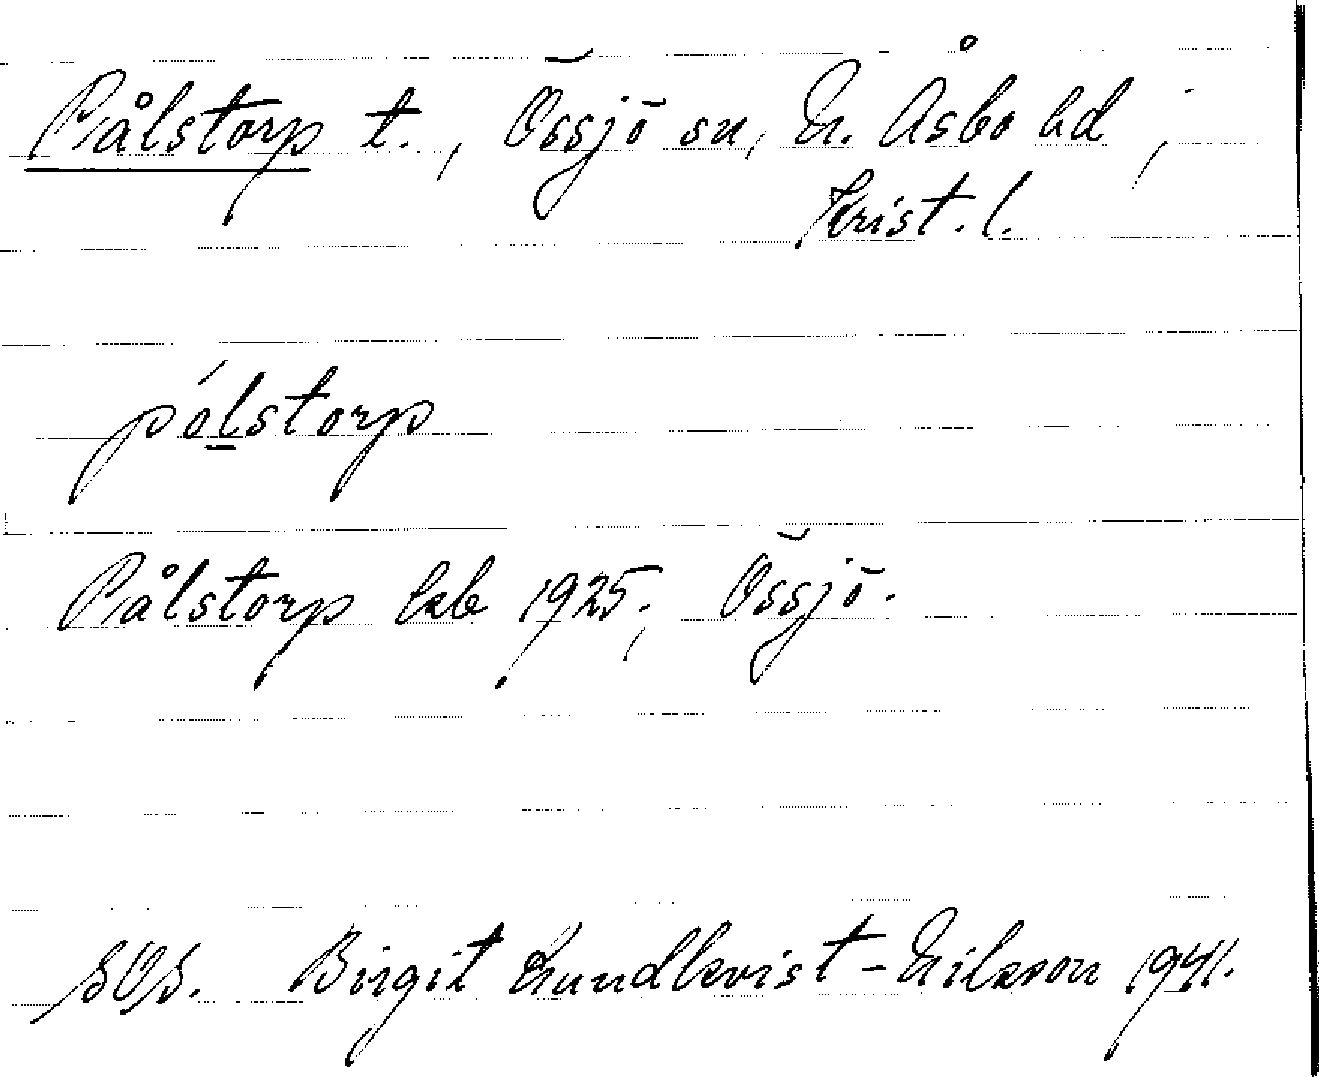 Pålstorp t., Össjö sn, N. Åsbo hd,
Krist. l.
pólstorp
Pålstorp lkb 1925, Össjö.
SOS. Birgit Lundkvist-Nilsson 1941.